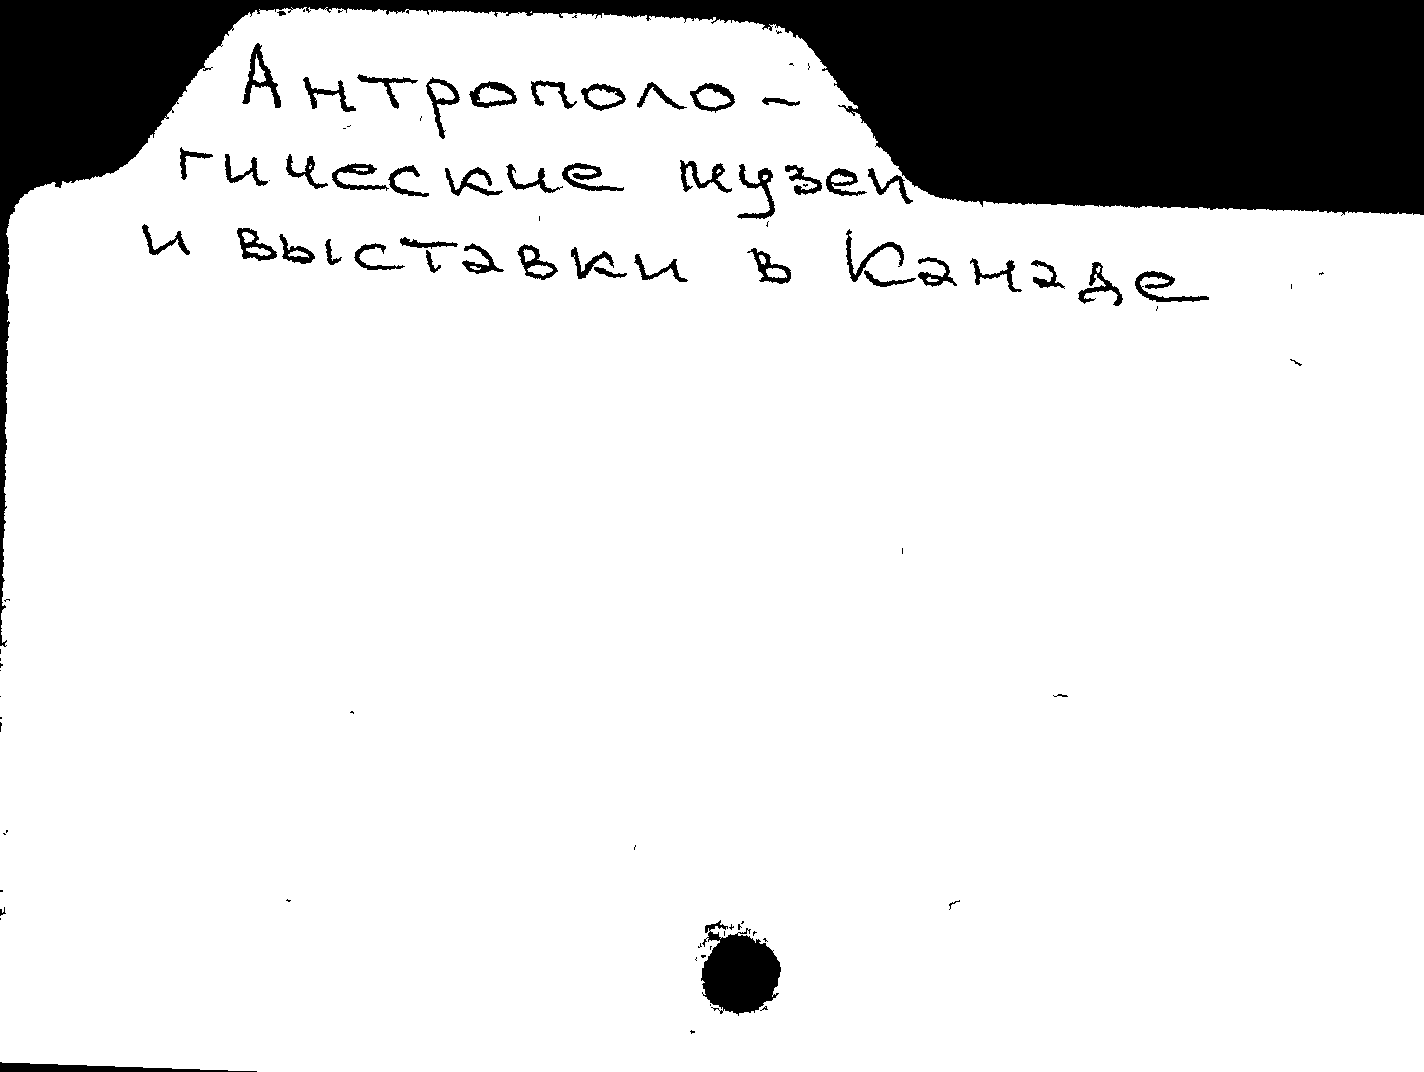 Антрополо-
гические музеи
и выставки в Канаде